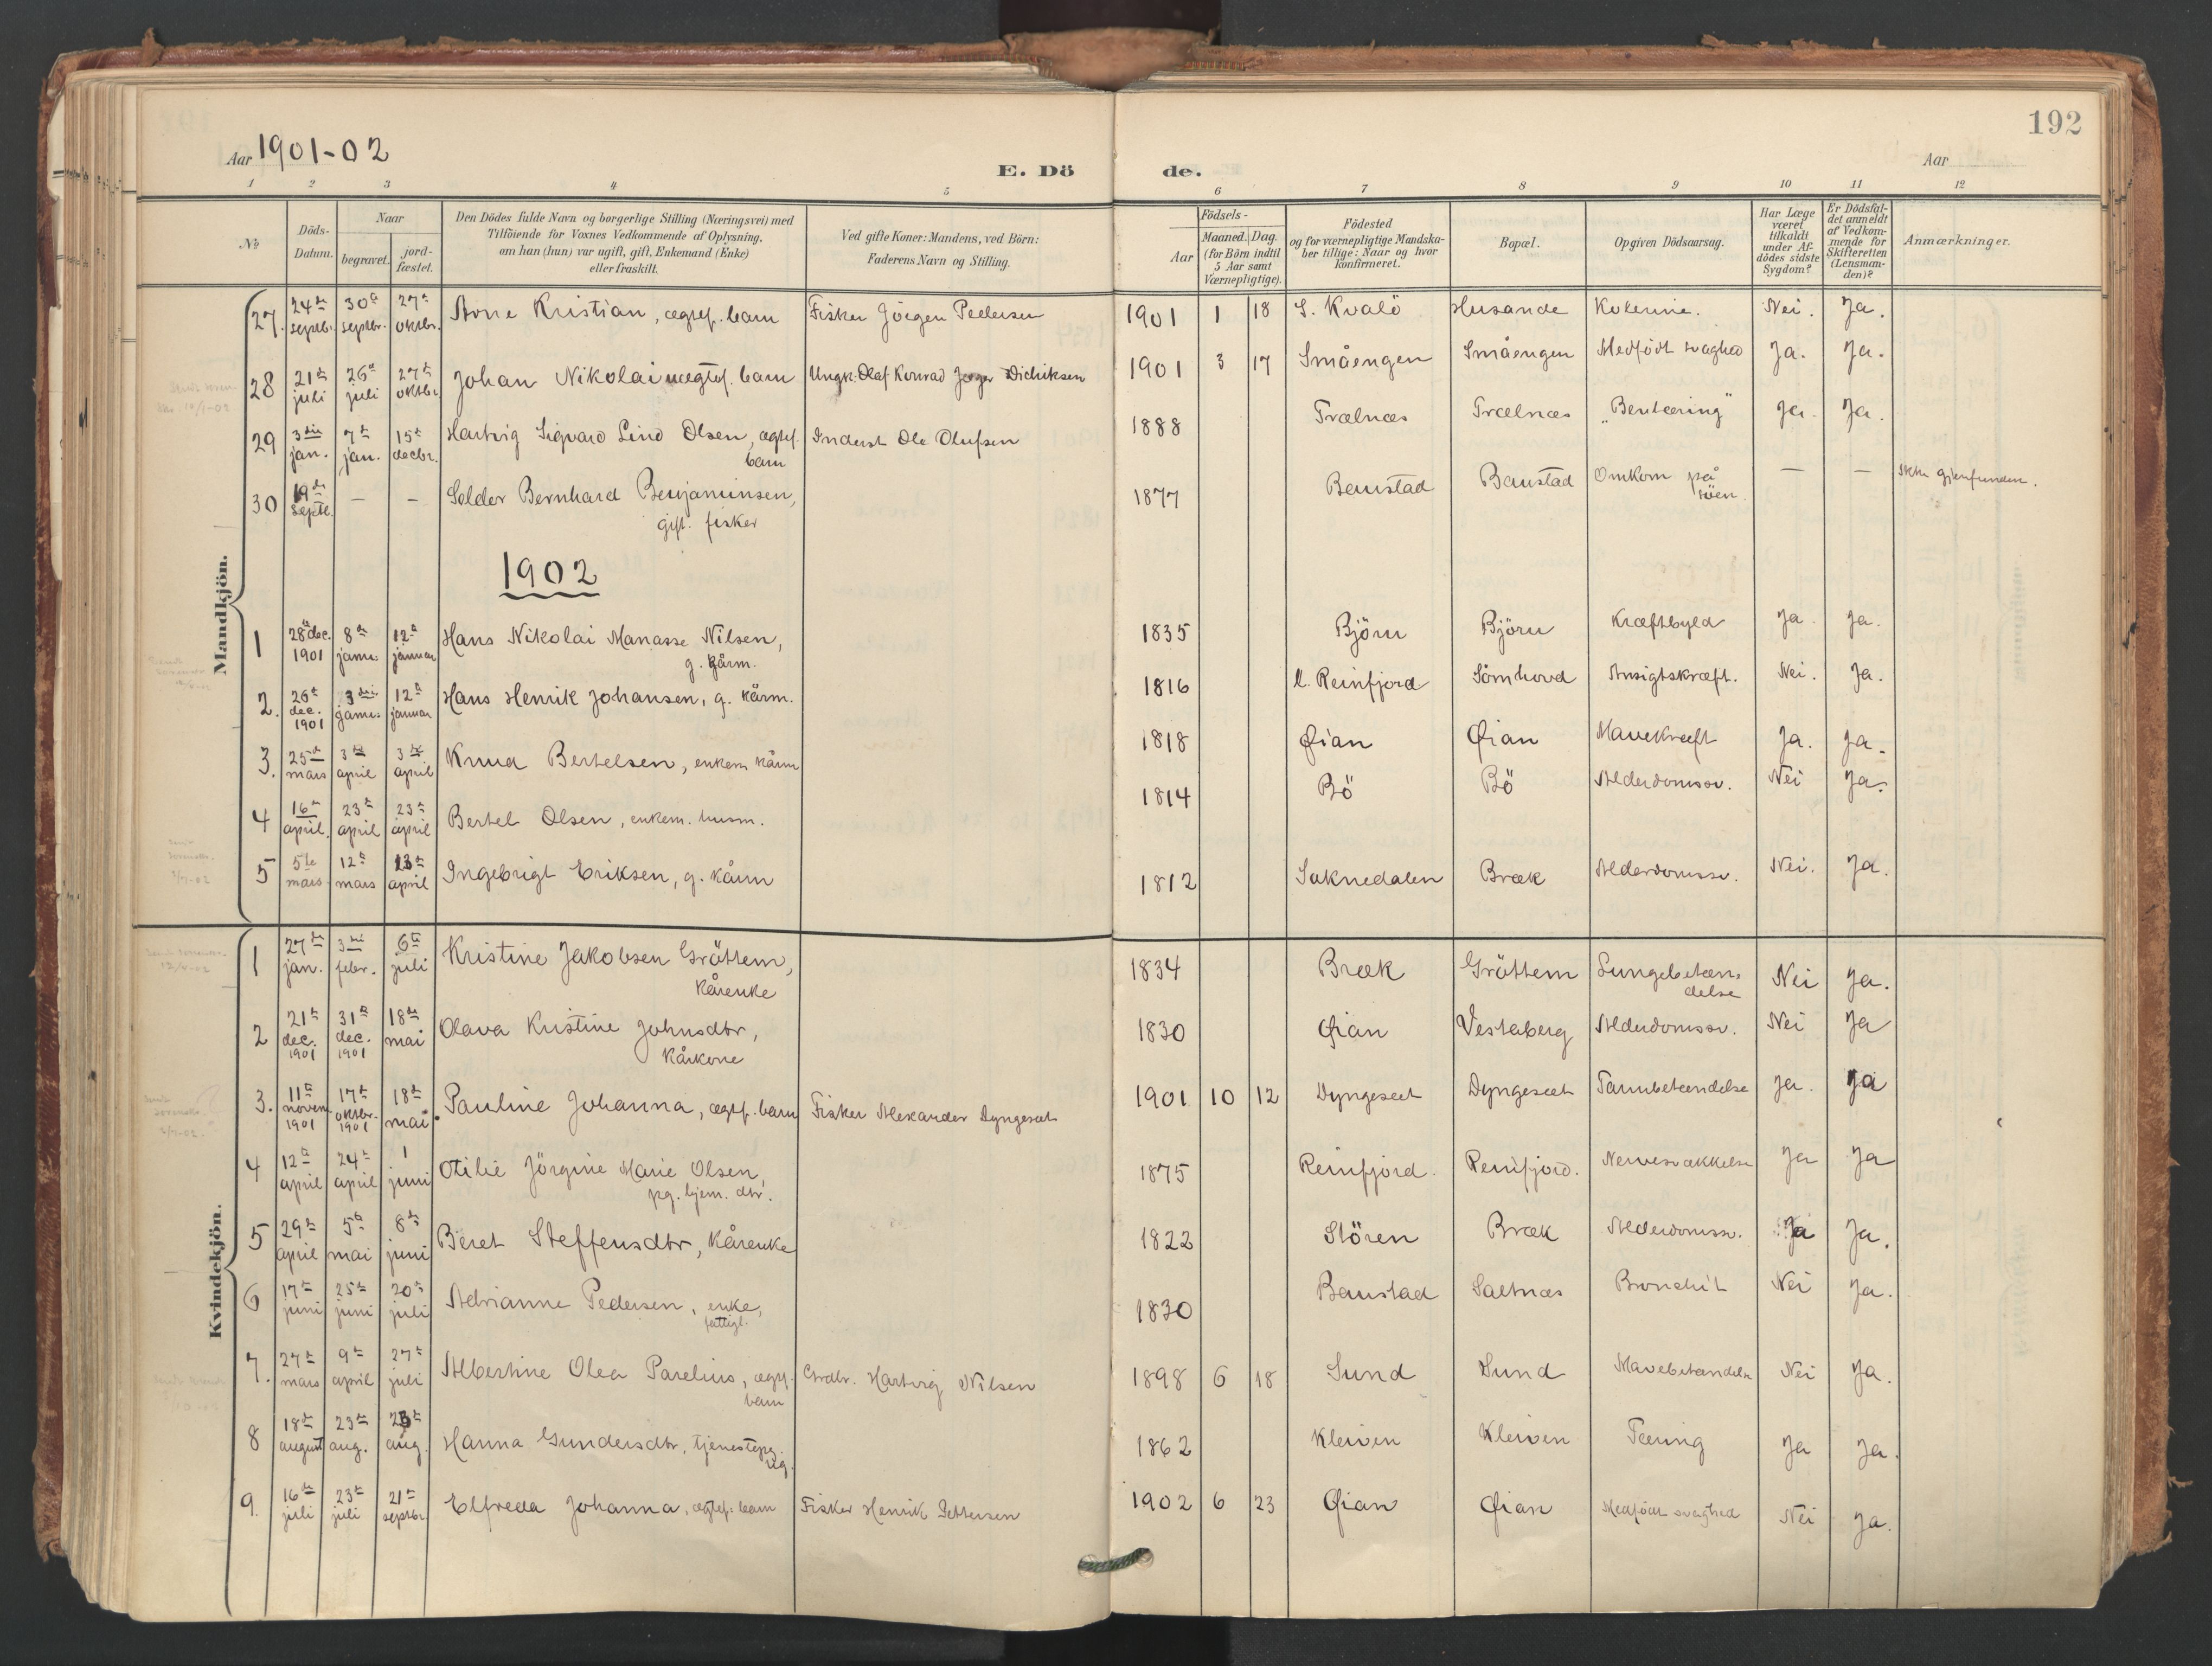 192
Aar 1901-02
E. Dö de.
Aar
1 2 3 4 5 6 7 8 9 10 11 12
No
Döds-Datum.
Naar
begravet.
jord-fæstet.
Den Dödes fulde Navn og borgerlige Stilling (Næringsvei) med
Tilföiende for Voxnes Vedkommende af Oplysning,
om han (hun) var ugift, gift, Enkemand (Enke)
eller fraskilt.
Ved gifte Koner: Mandens, ved Börn:
Faderens Navn og Stilling.
Födsels-
Aar
Maaned. Dag.
(for Börn indtil
5 Aar samt
Værnepligtige).
Födested
og for værnepligtige Mandska-
ber tillige: Naar og hvor
konfirmeret.
Bopæl.
Opgiven Dödsaarsag.
Har Læge
været
tilkaldt
under Af-
dödes sidste
Sygdom?
Er Dödsfal-
det anmeldt
af Vedkom-
mende for
Skifteretten
(Lensman-
den)?
Anmærkninger.
Mandkjön.
27. 24de septbr. 30te septbr. 27de oktbr. Arne Kristian, ægtef. barn Fisker Jörgen Pedersen 1901 1 18 S. Kvalö Husande Nei. Ja.
28 21de juli 26de juli 27de oktbr. Johan Nikolai uægtef. barn Ungk. Olaf Konrad Didriksen 1901 3 17 Småengen Småengen Medfödt svaghed Ja. Ja.
29 3die jan. 7de jan. 15de decbr. Hartvig Sigvard Lind Olsen, ægtef.
barn Inderst Ole Olufsen 1888 Trælnæs Trælnæs "Bentæring" Ja. Ja.
30 19de septb. – – Selder Bernhard Benjaminsen,
gift. fisker 1877 Baustad Baustad Omkom på
söen. — — Ikke gjenfunden.
1902
1 28de dec. 1901 8de janu. 12te januar Hans Nikolai Manasse Nilsen,
g. kårm. 1835 Björn Björn Kræftbyld Ja. Ja.
2. 26de dec. 1901 3die janu. 12te januar Hans Henrik Johansen, g. kårm. 1816 Reinfjord Sömhovd Ansigtskræft. Nei. Ja.
3. 25de mars 3die april 3die april Knud Bertelsen, enkem. kårm 1818 Øian Øian Mavekræft Ja. Ja.
4 16de april. 23de april 23de april Bertel Olsen, enkem. husm. 1814 Bö Bö Alderdomssv. Nei Ja.
5 5te mars 12te mars 13de april Ingebrigt Eriksen, g. kårm 1812 Soknedalen Bræk Alderdomssv. Nei. Ja.
Kvindekjön.
1 27de jan. 3die febr. 6te juli Kristine Jakobsen Gråttem,
kårenke 1834 Bræk Gråttem Lungebetæn-
delse Nei Ja.
2 21de dec. 1901 31te dec. 1901 18de mai Olava Kristine Johnsdtr,
kårkone 1830 Øian Vestaberg Alderdomssv. Nei Ja
3. 11te novem 1901 17de oktbr. 1901 18de mai. Pauline Johanna, ægtef. barn Fisker Alexander Dyngesæt 1901 10 12 Dyngesæt Dyngesæt Tarmbetændelse Ja. Ja
4 12te april 24de april 1 juni Otilie Jörgine Marie Olsen,
pg. hjem. dtr. 1875 Reinfjord. Reinfjord. Nervesvækkelse Ja Ja
5 29de april 5te mai 8de juni Beret Steffensdtr, kårenke 1822 Stören Bræk Alderdomssv. Ja Ja.
6 17de juni 25de juni 20de juli Adrianne Pedersen, enke,
fattigl. 1830 Baustad Saltnæs Bronchit Nei Ja.
7. 27de mars 9de april 27de juli Albertine Olea Parelius, ægtef.
barn Grdbr. Hartvig Nilsen 1898 6 18 Sund Sund Mavebetændelse Nei Ja.
8 18de august 23de aug. aug. Hanna Gundersdtr, tjenestepg.
ug. 1862 Kleiven Kleiven Tæring Ja Ja.
9. 16de juli 23de juli 21de septbr. Elfreda Johanna, ægtef. barn Fisker Henrik Pettersen 1902 6 23 Øian Øian Medfödt svaghed Nei Ja.